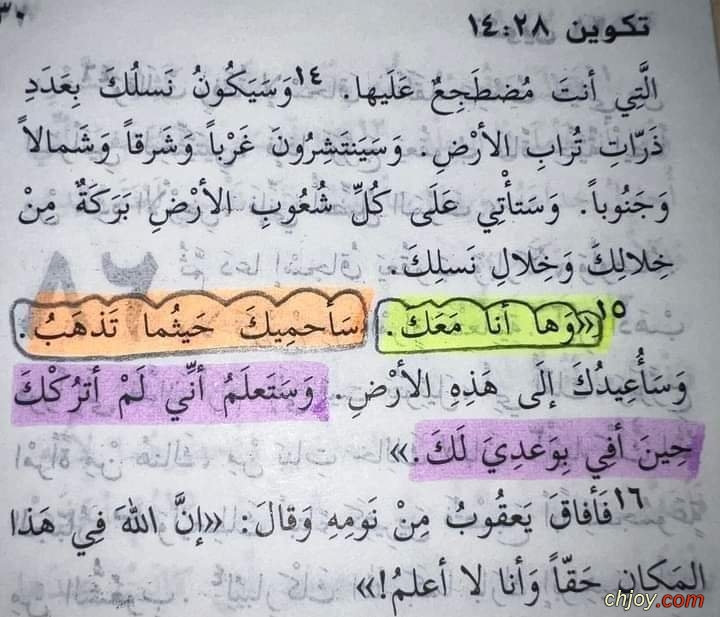 تكوين ١٤:٢٨
٣٠
الَّتِي أنتَ مُضطَجِعٌ عَلَيها. ١٤وَسَيَكُونُ نَسلُكَ بِعَدَدِ
ذَرّاتِ تُرابِ الأرْضِ. وَسَيَنتَشِرُونَ غَرْباً وَشَرقاً وَشَمالاً
وَجَنُوباً. وَسَتأْتِي عَلَى كُلِّ شُعُوبِ الأرْضِ بَرَكَةٌ مِنْ
خِلالِكَ وَخِلالِ نَسلِكَ.
١٥«وَها أنا مَعَكَ. سَأحمِيكَ حَيثُما تَذهَبُ.
وَسَأُعِيدُكَ إلَى هَذِهِ الأرْضِ. وَسَتَعلَمُ أنِّي لَمْ أترُكْكَ
حِينَ أفِي بِوَعدِيَ لَكَ.»
١٦فَأفاقَ يَعقُوبُ مِنْ نَومِهِ وَقالَ: «إنَّ اللهَ فِي هَذا
المَكانِ حَقّاً وَأنا لا أعلَمُ!»
chjoy.com